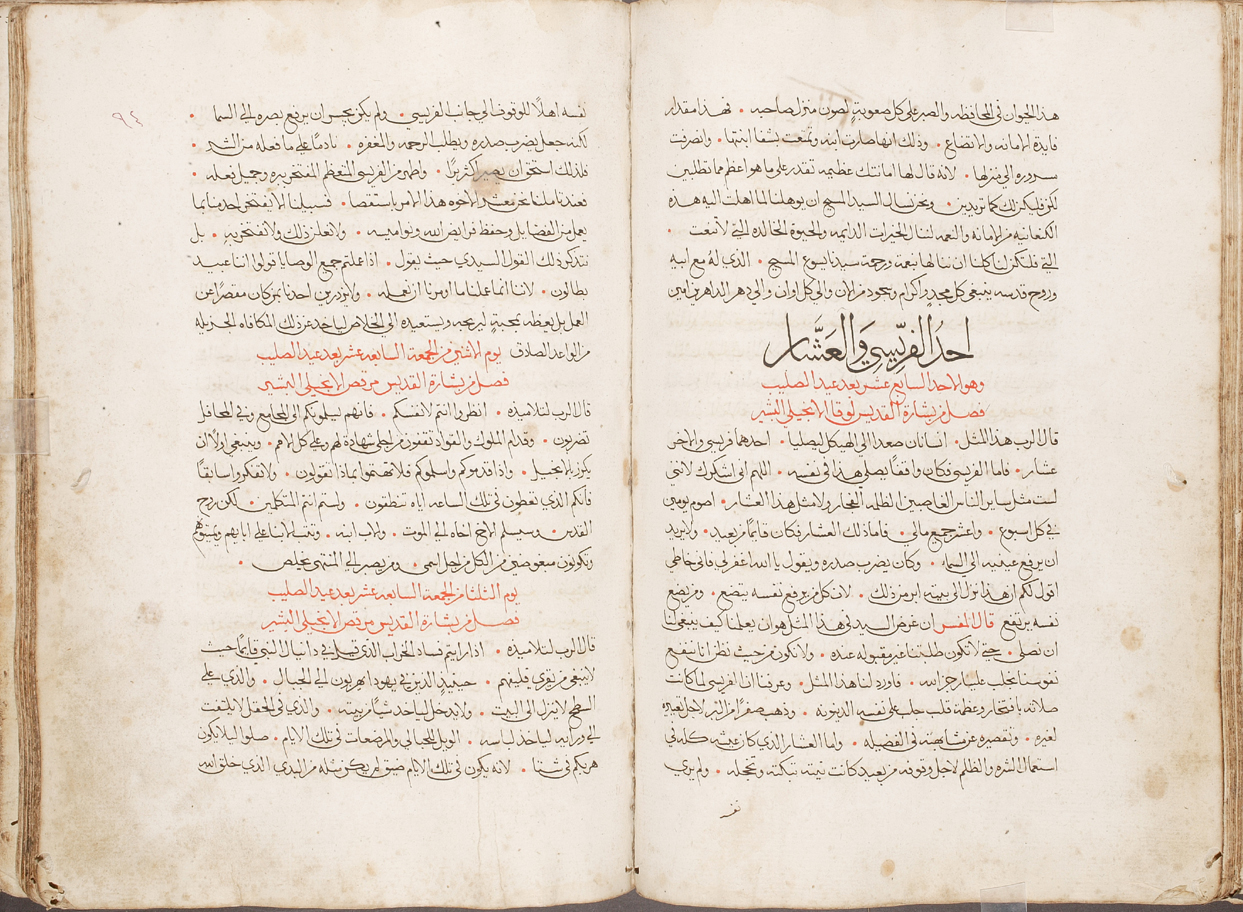 هذا الحيوان في المحافظه والصبر على كل صعوبةٍ لصون منزل صاحبه • فهذا مقدار
فايدة الامانه والاتضاع • وذلك انها صارت ابنه وتمتعت بشفا ابنتها • وانصرفت
مسروره الى منزلها • لانه قال لها امانتك عظيمه تقدر على ما هو اعظم مما تطلبين
لكن فليكن لك كما تريدين • ونحن نسال السيد المسيح ان يوهلنا لما اهلت اليه هذه
الكنعانيه من الامانه والنعمه لننال الخيرات الدايمه والحيوة الخالده التي لا تنعت •
التي فلتكن لنا كلنا ان ننالها بنعمة ورحمة سيدنا يسوع المسيح • الذي له مع ابيه
وروح قدسه ينبغي كل مجدٍ واكرام وسجود من الان والى كل اوان والى دهر الداهرين امين
احدُ الفرِّيسِي وَالعَشَّار
وهو الاحد السابع عشر بعد عيد الصليب
فصل من بشارة القديس لوقا الانجيلي البشير
قال الرب هذا المثل • انسانان صعدا الى الهيكل ليصليا • احدهما فريسي والاخر
عشار • فاما الفريسي فكان واقفًا يصلي هذا في نفسه • اللهم اني اشكرك لانني
لست مثل ساير الناس الغاصبين الظلمه الفجار ولا مثل هذا العشار • اصوم يومين
في كل اسبوع • واعشر جميع مالي • فاما ذلك العشار فكان قايمًا من بعيد • ولا يريد
ان يرفع عينيه الى السماء • وكان يضرب صدره ويقول يا الله اغفر لي فاني خاطي
اقول لكم ان هذا نزل الى بيته ابر من ذلك • لان كل من يرفع نفسه يتضع • ومن يضع
نفسه يرتفع قال المفسر ان غرض السيد في هذا المثل هو ان يعلمنا كيف ينبغي لنا
ان نصلي • حتى لا تكون طلبتنا غير مقبوله عنده • ولا نكون من حيث نظن اننا ننفع
نفوسنا نجلب عليها رجز الله • فاورد لنا هذا المثل • وعرفنا ان الفريسي لما كانت
صلاته بافتخار وعظمة قلب جلب على نفسه الدينونه • وذهب صفرًا من البر لاجل تعييره
لغيره • وتقصيره عن مشابهته في الفضيله • واما العشار الذي كان عيشه كله في
استعمال الشره والظلم لاجل وقوفه من بعيد كانت نيته تبكته وتخجله • ولم يري
نفسه
٩٤
نفسه اهلًا للوقوف الى جانب الفريسي • ولم يكن يجسر ان يرفع بصره الى السما •
لكنه جعل يضرب صدره ويطلب الرحمه والمغفره • نادمًا على ما فعله من الشر •
فلذلك استحق ان يصير اكثر برًا • واطهر من الفريسي المتعظم المفتخر ببره وجميل فعله •
فعندنا ملنا نحن معشر الاخوه هذا الامر باستقصا • فسبيلنا الا يفتخر احد منا بما
يعمل من الفضايل وحفظ فرايض الله ونواميسه • ولا نعلن ذلك ولا نفتخر به • بل
نتذكر ذلك القول السيدي حيث يقول • اذا عملتم جميع الوصايا قولوا اننا عبيد
بطالون • لاننا انما عملنا ما اومرنا ان نعمله • ولا نزدرين احدنا بمن كان مقصرًا عن
العمل بل يعظه بمحبةٍ ليربحه ويستعيده الى الخلاص لياخذ عن ذلك المكافاه الجزيله
من الواعد الصادق يوم الاثنين من الجمعة السابعه عشر بعد عيد الصليب
فصل من بشارة القديس مرقص الانجيلي البشير
قال الرب لتلاميذه • انظروا انتم لانفسكم • فانهم يسلمونكم الى المجامع وفي المحافل
تضربون • وقدام الملوك والقواد تقفون من اجلي شهادة لهم وعلى كل الامم • وينبغي اولًا ان
يكرز بالانجيل • واذا قدموكم واسلموكم فلا تهتموا بماذا تقولون • ولا تفكروا سابقًا
فانكم الذي تعطون في تلك الساعه اياه تنطقون • ولستم انتم المتكلمين • لكن روح
القدس • وسيسلم الاخ اخاه الى الموت • والاب ابنه • وتقوم الابنا على ابايهم ويميتونهم
وتكونون مبغوضين من الكل من اجل اسمي • ومن يصبر الى المنتهى يخلص •
يوم الثلثا من الجمعة السابعه عشر بعد عيد الصليب
فصل من بشارة القديس مرقص الانجيلي البشير
قال الرب لتلاميذه • اذا رايتم فساد الخراب الذي قيل في دانيال النبي قايمًا حيث
لا ينبغي من يقري فليفهم • حينيذٍ الذين في يهودا يهربون الى الجبال • والذي على
السطح لا ينزل الى البيت • ولا يدخل لياخذ شيًا من بيته • والذي في الحقل لا يلتفت
الى ورايه لياخذ لباسه • الويل للحبالى والمرضعات في تلك الايام • صلوا ليلا يكون
هربكم في شتا • لانه يكون في تلك الايام ضيق لم يكن مثله من البدي الذي خلق الله